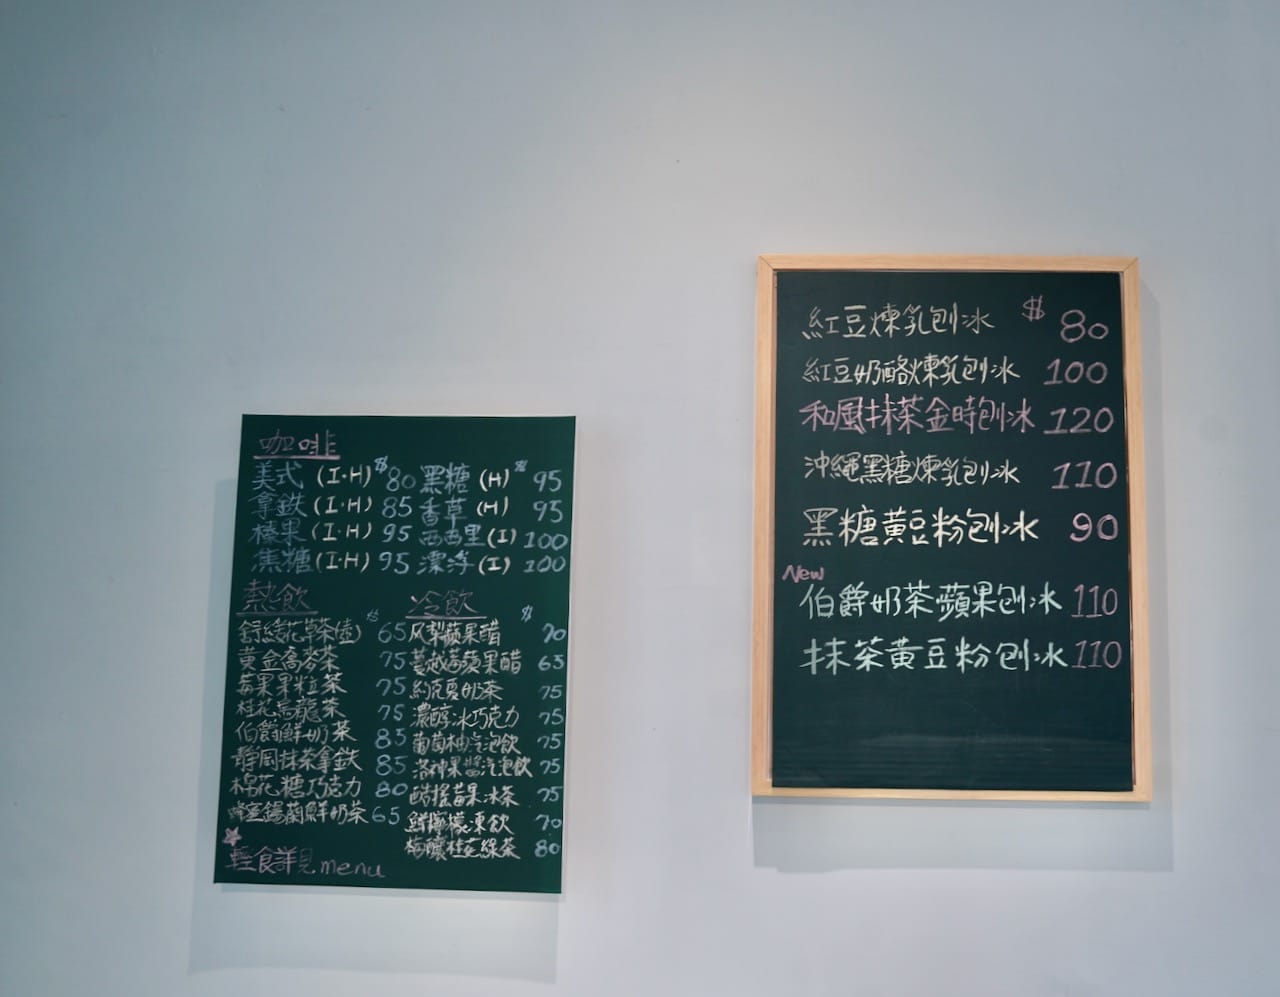 咖啡
美式 (I·H) $ 80 黑糖 (H) $ 95
拿鐵 (I·H) 85 香草 (H) 95
榛果 (I·H) 95 西西里 (I) 100
焦糖 (I·H) 95 漂浮 (I) 100
熱飲 $
舒緩花草茶(壺) 65
黃金蕎麥茶 75
莓果果粒茶 75
桂花烏龍茶 75
伯爵鮮奶茶 85
靜岡抹茶拿鐵 85
棉花糖巧克力 80
蜂蜜錫蘭鮮奶茶 65
冷飲 $
鳳梨蘋果醋 70
蔓越莓蘋果醋 65
約克夏奶茶 75
濃醇冰巧克力 75
葡萄柚汽泡飲 75
洛神果醬汽泡飲 75
酷搖莓果冰茶 75
鮮檸檬凍飲 70
梅釀桂花綠茶 80
輕食詳見menu
紅豆煉乳刨冰 $ 80
紅豆奶酪煉乳刨冰 100
和風抹茶金時刨冰 120
沖繩黑糖煉乳刨冰 110
黑糖黃豆粉刨冰 90
New
伯爵奶茶蘋果刨冰 110
抹茶黃豆粉刨冰 110